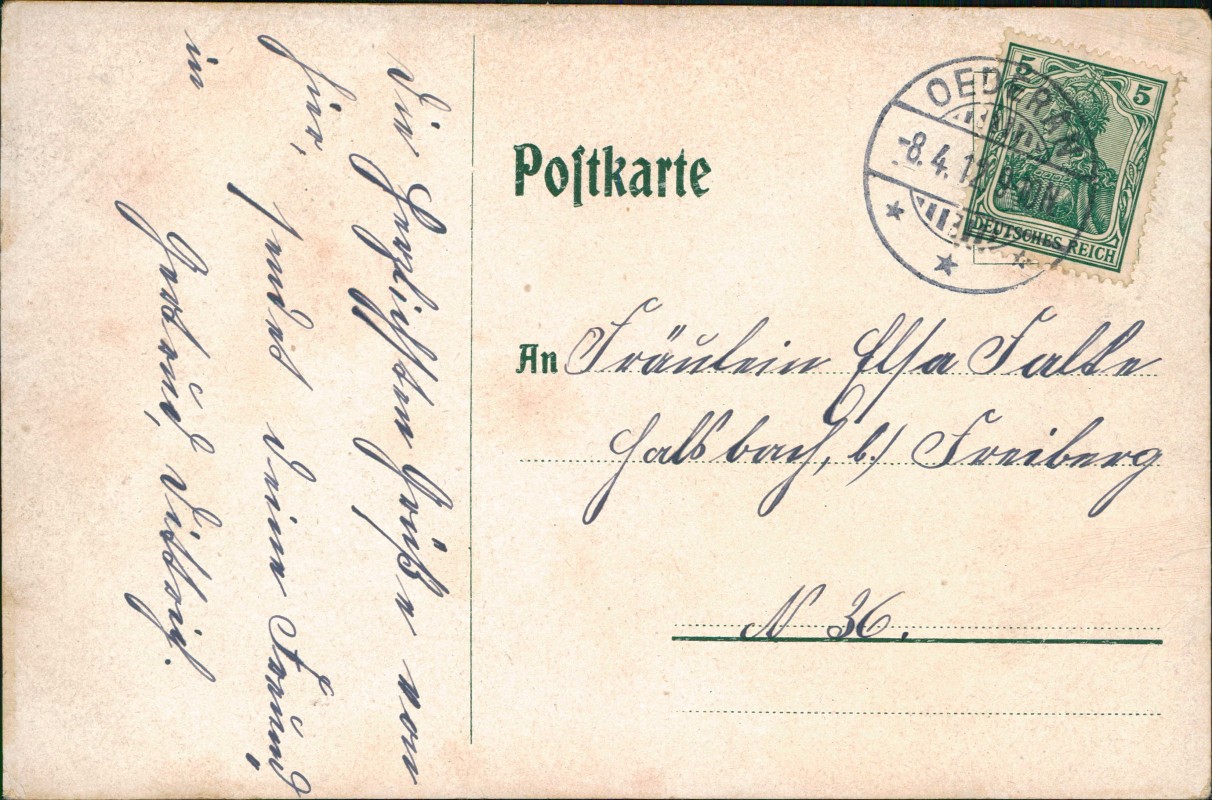 Die herzlichsten Grüße von
hier, sendet deine Freundin
Gertrud Dittrich.
Postkarte
OEDERAN
-8.4.12 8-9N
5
5
DEUTSCHES REICH
An Fräulein Elsa Falke
Halsbach, b/ Freiberg
N 36.